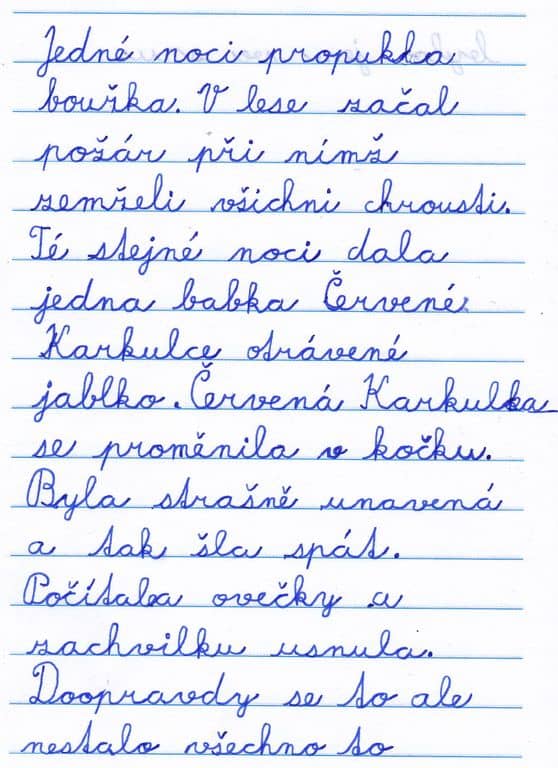 Jedné noci propukla
bouřka. V lese začal
požár při nímž
zemřeli všichni chrousti.
Té stejné noci dala
jedna babka Červené
Karkulce otrávené
jablko. Červená Karkulka
se proměnila v kočku.
Byla strašně unavená
a tak šla spát.
Počítala ovečky a
zachvilku usnula.
Doopravdy se to ale
nestalo všechno to